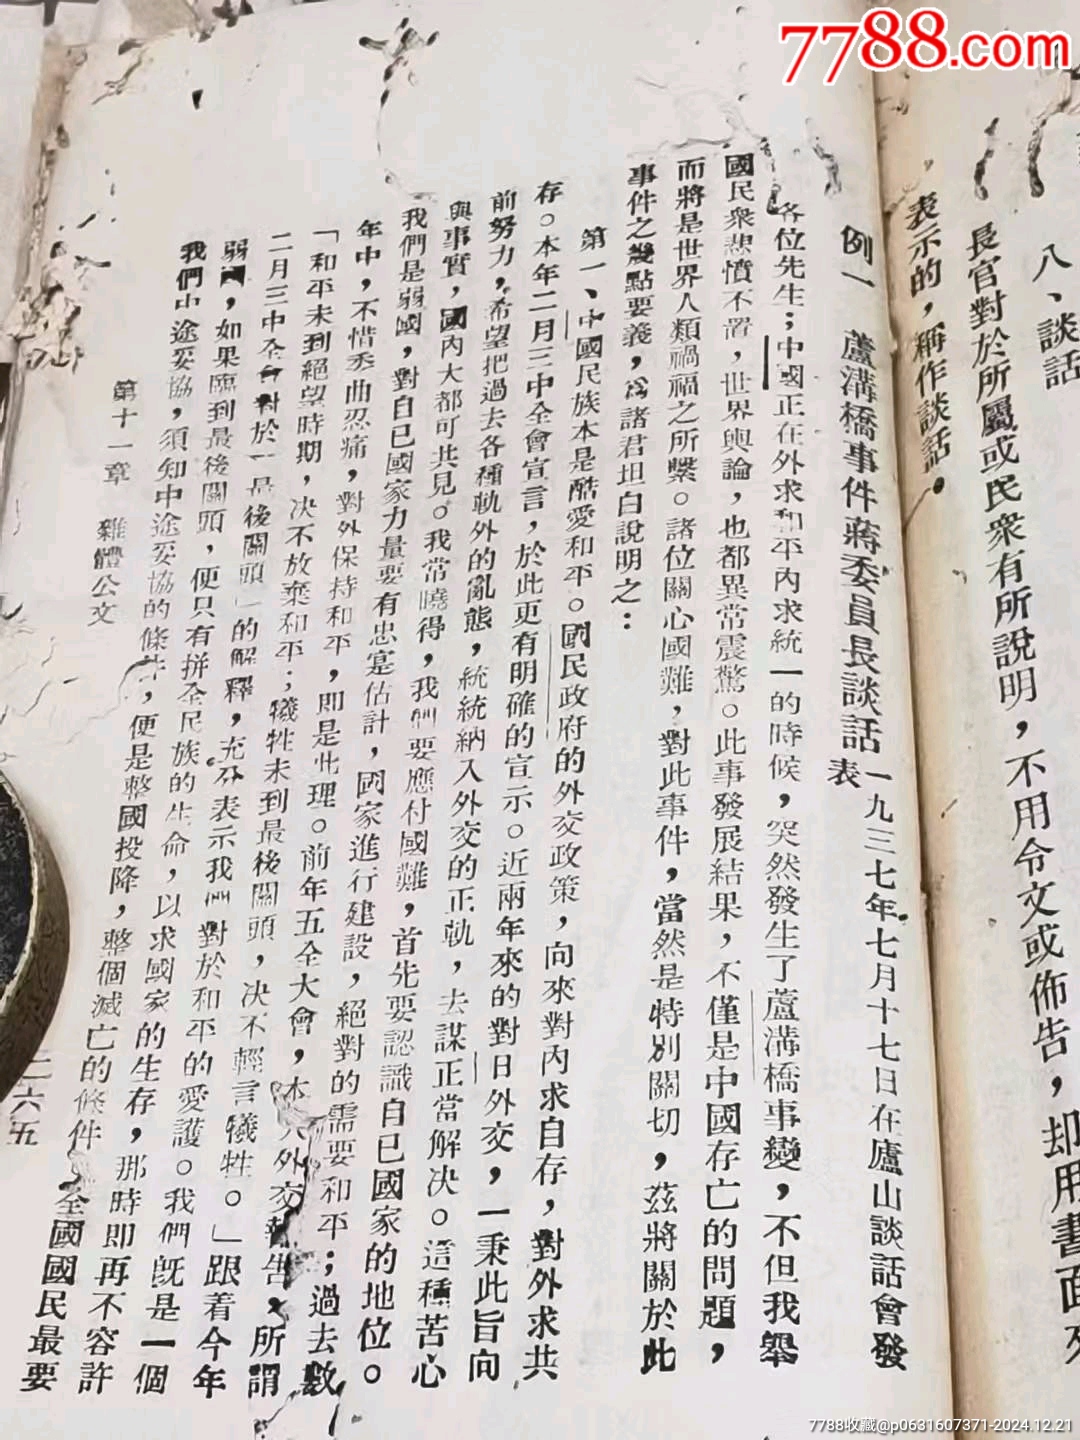 7788.com
八、談話
長官對於所屬或民衆有所說明，不用令文或佈告，却用書面
表示的，稱作談話。
例一　蘆溝橋事件蔣委員長談話一九三七年七月十七日在廬山談話會發
表
各位先生；中國正在外求和平內求統一的時候，突然發生了蘆溝橋事變，不但我舉
國民衆悲憤不置，世界輿論，也都異常震驚。此事發展結果，不僅是中國存亡的問題，
而將是世界人類禍福之所繫。諸位關心國難，對此事件，當然是特別關切，茲將關於此
事件之幾點要義，爲諸君坦白說明之：
第一、中國民族本是酷愛和平。國民政府的外交政策，向來對內求自存，對外求共
存。本年二月三中全會宣言，於此更有明確的宣示。近兩年來的對日外交，一秉此旨向
前努力，希望把過去各種軌外的亂態，統統納入外交的正軌，去謀正當解決。這種苦心
與事實，國內大都可共見。我常曉得，我們要應付國難，首先要認識自已國家的地位。
我們是弱國，對自已國家力量要有忠實估計，國家進行建設，絕對的需要和平；過去數
年中，不惜委曲忍痛，對外保持和平，即是此理。前年五全大會，本人外交報告，所謂
「和平未到絕望時期，決不放棄和平；犧牲未到最後關頭，决不輕言犧牲。」跟着今年
二月三中全會對於「最後關頭」的解釋，充分表示我們對於和平的愛護。我們旣是一個
弱國，如果臨到最後關頭，便只有拼全民族的生命，以求國家的生存，那時即再不容許
我們中途妥協，須知中途妥協的條件，便是整國投降，整個滅亡的條件，全國國民最要
第十一章　雜體公文
二六五
7788收藏@p0631607371-2024.12.21